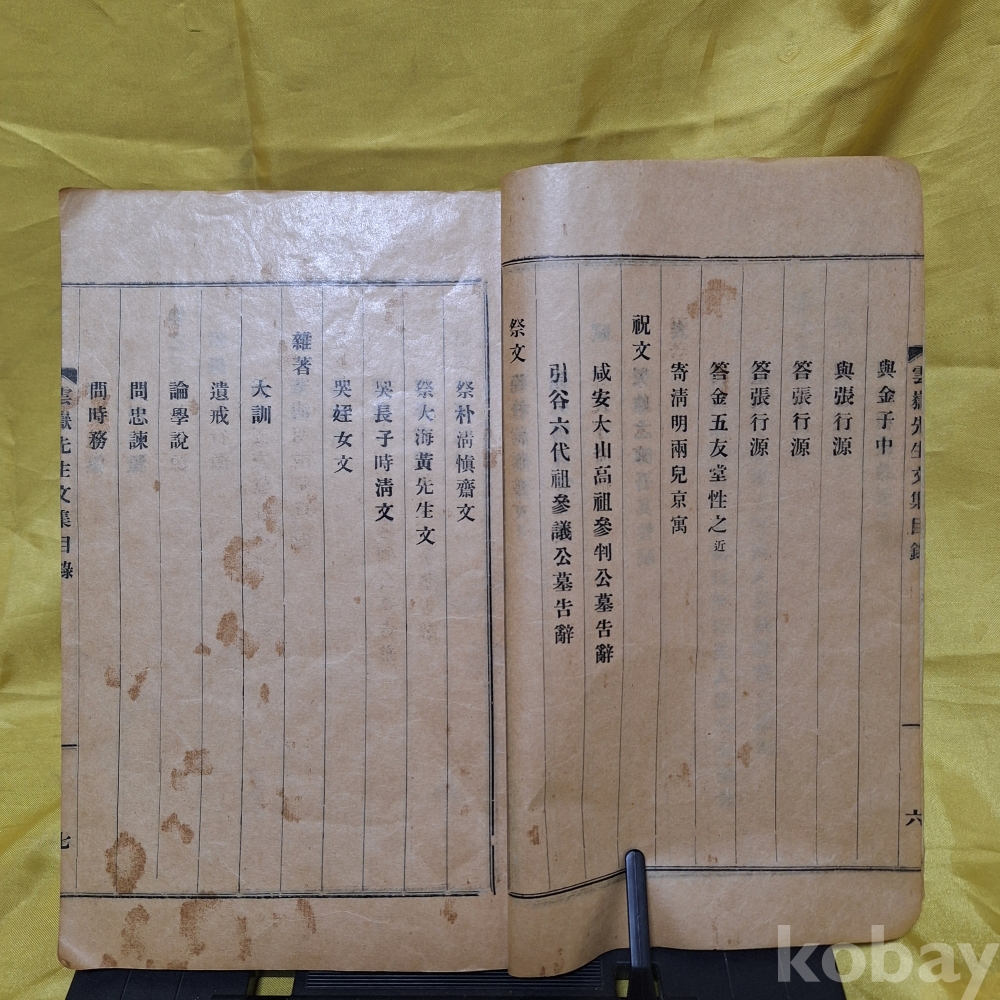 雲嶽先生文集目錄
六
與金子中
與張行源
答張行源
答張行源
答金五友堂性之近
寄淸明兩兒京寓
祝文
咸安大山高祖參判公墓告辭
引谷六代祖參議公墓告辭
祭文
祭朴淸愼齋文
祭大海黃先生文
哭長子時淸文
哭姪女文
雜著
大訓
遺戒
論學說
問忠諫
問時務
雲嶽先生文集目錄
七
kobay